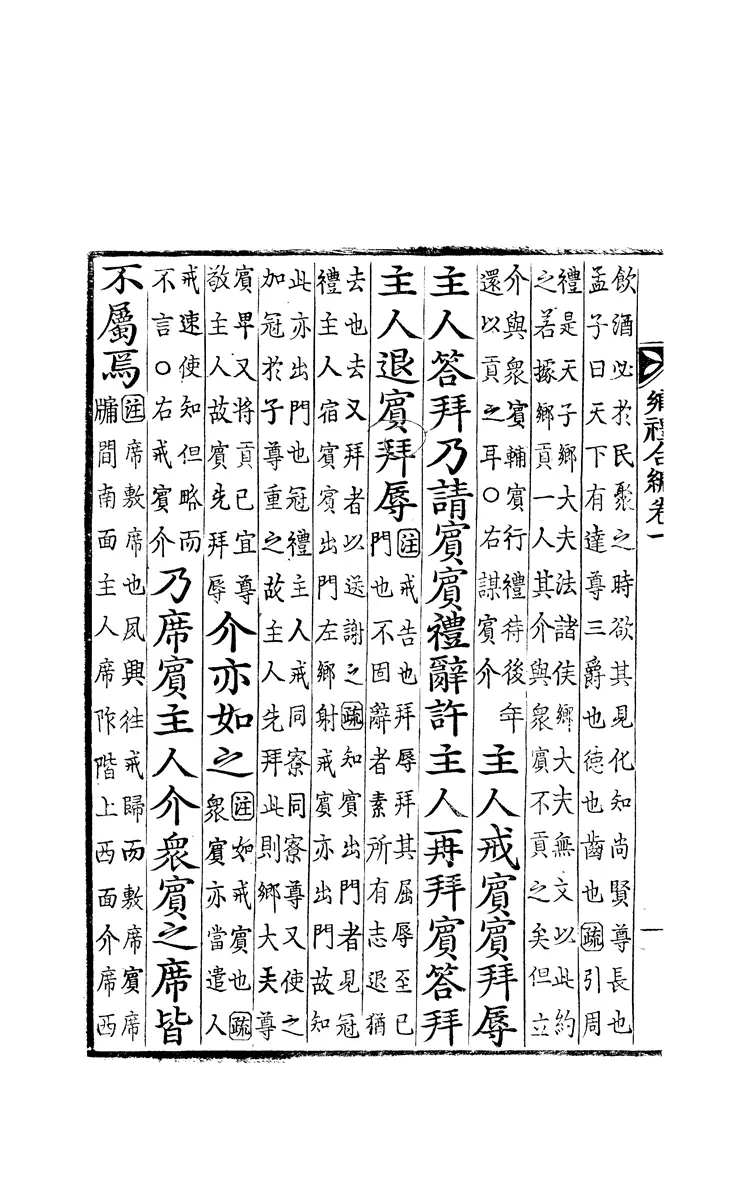 鄉禮合編卷一
一
飲酒必於民聚之時欲其見化知尚賢尊長也
孟子曰天下有達尊三爵也德也齒也疏引周
禮是天子鄉大夫法諸侯鄉大夫無文以此約
之若據鄉貢一人其介與衆賓不貢之矣但立
介與衆賓輔賓行禮待後年
還以貢之耳○右謀賓介
主人戒賓賓拜辱
主人答拜乃請賓賓禮辭許主人再拜賓答拜
主人退賓拜辱
注戒告也拜辱拜其屈辱至已
門也不固辭者素所有志退猶
去也去又拜者以送謝之疏知賓出門者見冠
禮主人宿賓賓出門左鄉射戒賓亦出門故知
此亦出門也冠禮主人戒同寮同寮尊又使之
加冠於子尊重之故主人先拜此則鄉大夫尊
賓畀又將貢已宜尊
敬主人故賓先拜辱
介亦如之
注如戒賓也疏
衆賓亦當遣人
戒速使知但略而
不言○右戒賓介
乃席賓主人介衆賓之席皆
不屬焉
注席敷席也夙興往戒歸而敷席賓席
牖間南面主人席阼階上西面介席西